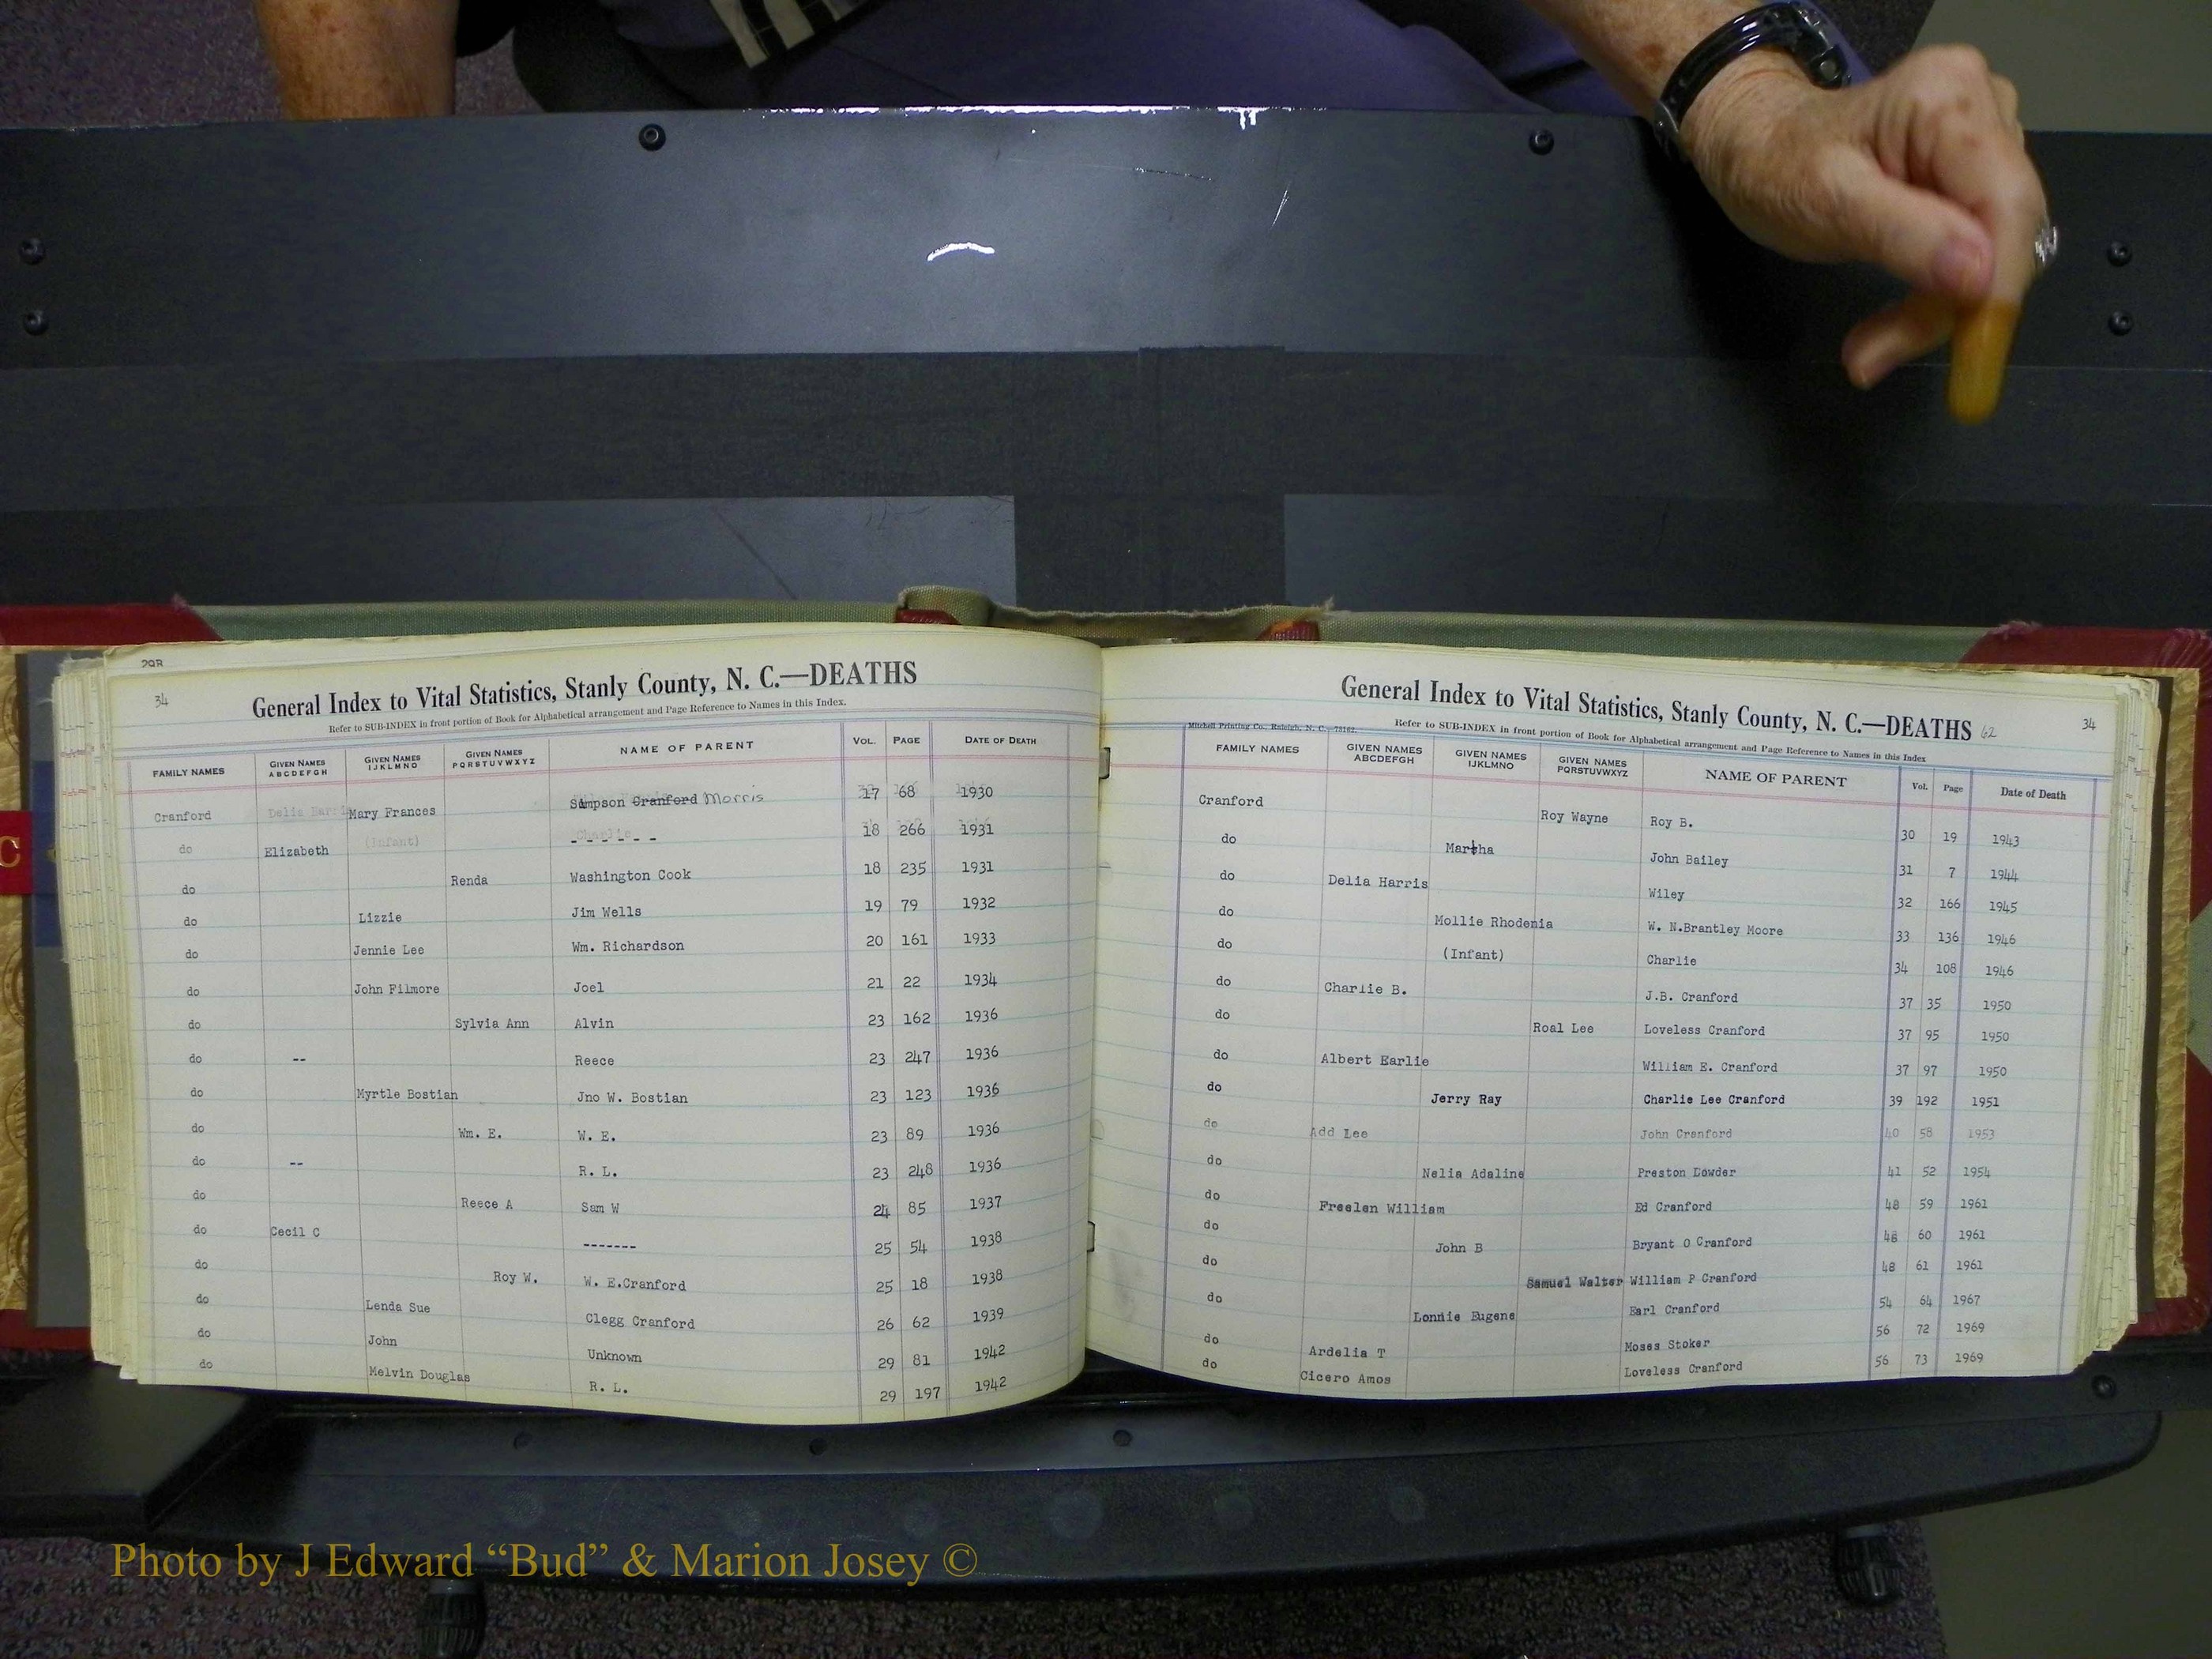 29B
34
General Index to Vital Statistics, Stanly County, N. C.—DEATHS
Refer to SUB-INDEX in front portion of Book for Alphabetical arrangement and Page Reference to Names in this Index.
FAMILY NAMES GIVEN NAMES ABCDEFGH GIVEN NAMES IJKLMNO GIVEN NAMES PQRSTUVWXYZ NAME OF PARENT VOL. PAGE DATE OF DEATH
Cranford Mary Frances Simpson Cranford Morris 17 68 1930
do Elizabeth - - - - - - 18 266 1931
do Renda Washington Cook 18 235 1931
do Lizzie Jim Wells 19 79 1932
do Jennie Lee Wm. Richardson 20 161 1933
do John Filmore Joel 21 22 1934
do Sylvia Ann Alvin 23 162 1936
do -- Reece 23 247 1936
do Myrtle Bostian Jno W. Bostian 23 123 1936
do Wm. E. W. E. 23 89 1936
do -- R. L. 23 248 1936
do Reece A Sam W 24 85 1937
do Cecil C ------- 25 54 1938
do Roy W. W. E.Cranford 25 18 1938
do Lenda Sue Clegg Cranford 26 62 1939
do John Unknown 29 81 1942
do Melvin Douglas R. L. 29 197 1942
General Index to Vital Statistics, Stanly County, N. C.—DEATHS 62
34
Mitchell Printing Co., Raleigh, N. C.
Refer to SUB-INDEX in front portion of Book for Alphabetical arrangement and Page Reference to Names in this Index
FAMILY NAMES GIVEN NAMES ABCDEFGH GIVEN NAMES IJKLMNO GIVEN NAMES PQRSTUVWXYZ NAME OF PARENT Vol. Page Date of Death
Cranford Roy Wayne Roy B. 30 19 1943
do Martha John Bailey 31 7 1944
do Delia Harris Wiley 32 166 1945
do Mollie Rhodenia W. N.Brantley Moore 33 136 1946
do (Infant) Charlie 34 108 1946
do Charlie B. J.B. Cranford 37 35 1950
do Roal Lee Loveless Cranford 37 95 1950
do Albert Earlie William E. Cranford 37 97 1950
do Jerry Ray Charlie Lee Cranford 39 192 1951
do Add Lee John Cranford 40 58 1953
do Nelia Adaline Preston Lowder 41 52 1954
do Freelen William Ed Cranford 48 59 1961
do John B Bryant O Cranford 48 60 1961
do Samuel Walter William P Cranford 48 61 1961
do Lonnie Eugene Earl Cranford 54 64 1967
do Ardelia T Moses Stoker 56 72 1969
do Cicero Amos Loveless Cranford 56 73 1969
C
Photo by J Edward “Bud” & Marion Josey ©